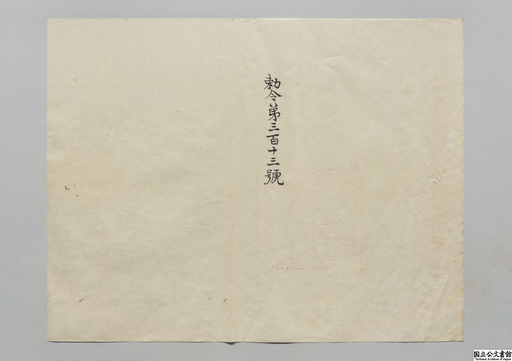 勅令第三百十三號
国立公文書館
National Archives of Japan